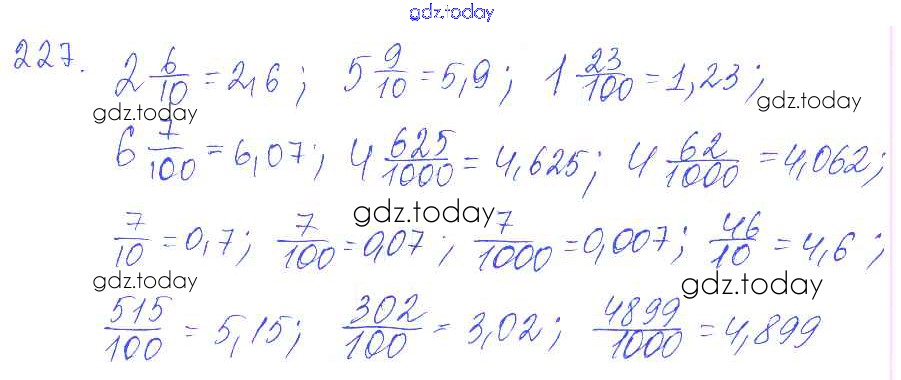 gdz.today
227. 2 6/10 = 2,6; 5 9/10 = 5,9; 1 23/100 = 1,23;
gdz.today
gdz.today
6 7/100 = 6,07; 4 625/1000 = 4,625; 4 62/1000 = 4,062;
gdz.today
7/10 = 0,7; 7/100 = 0,07; 7/1000 = 0,007; 46/10 = 4,6;
gdz.today
gdz.today
515/100 = 5,15; 302/100 = 3,02; 4899/1000 = 4,899